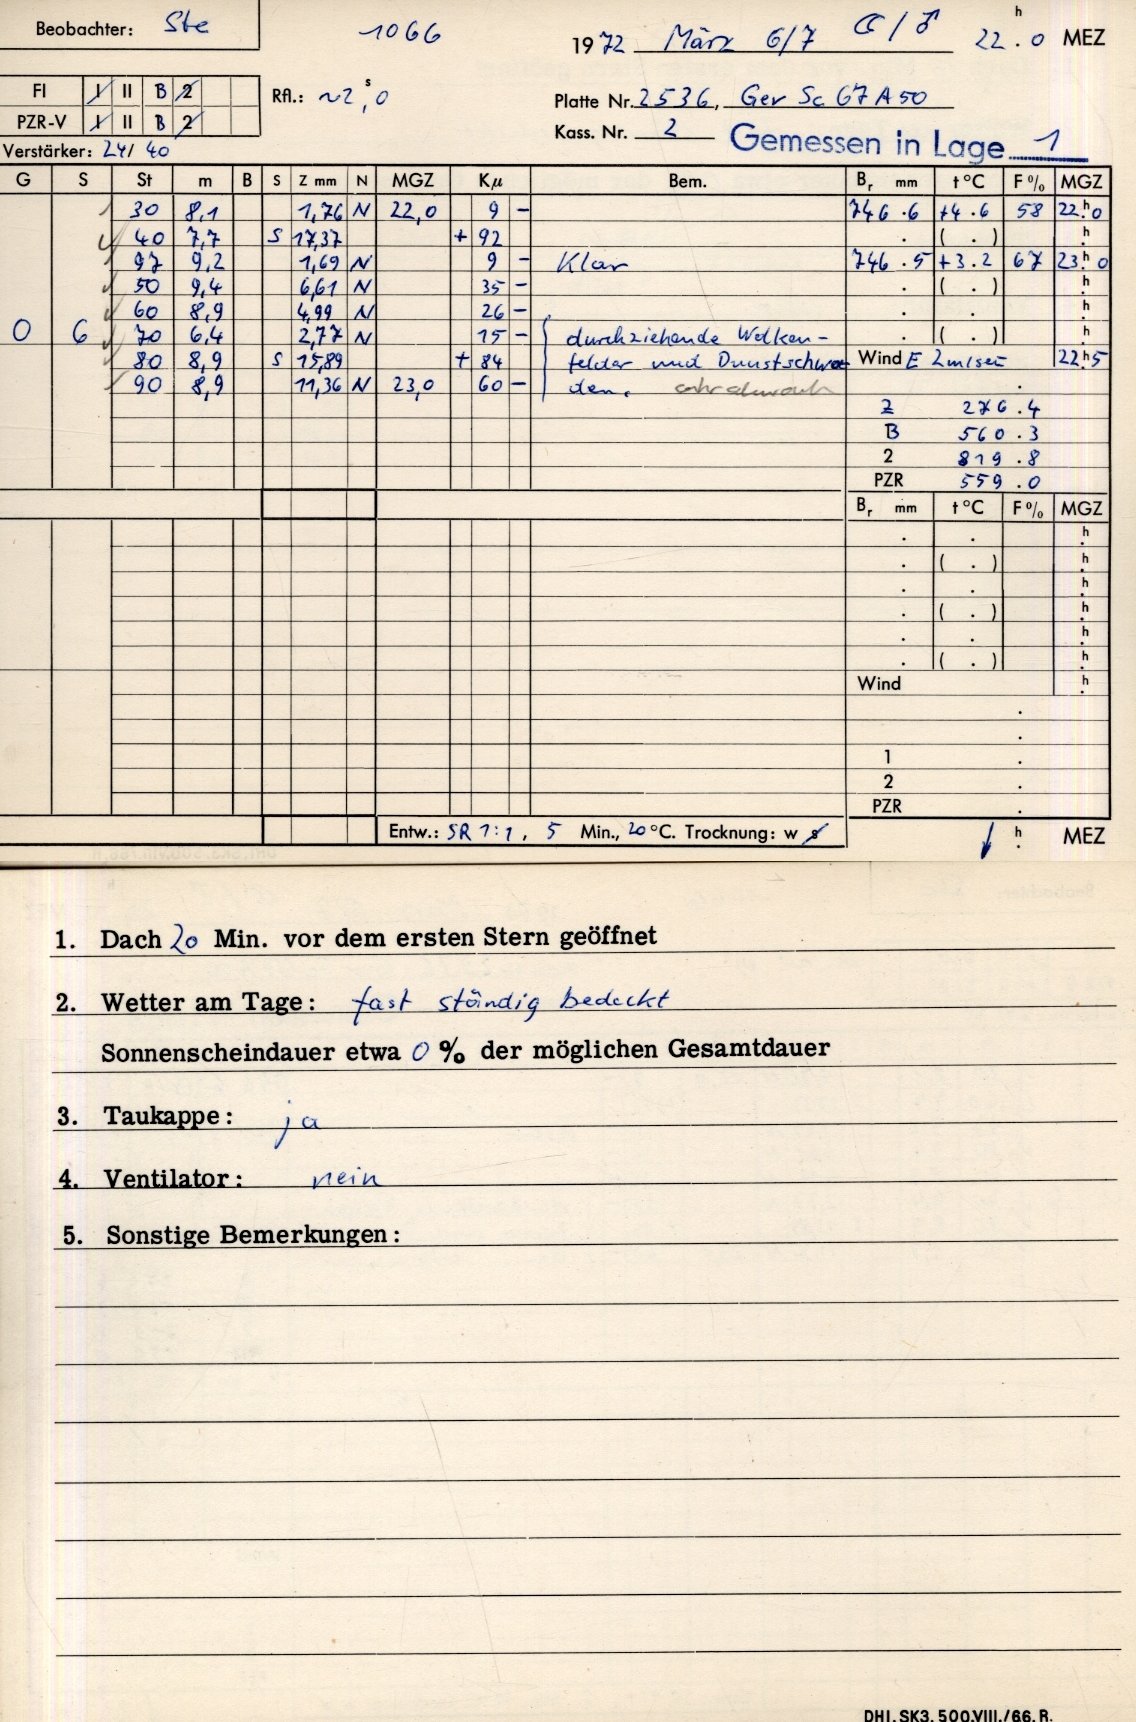 Beobachter: Ste 1066 1972 März 6/7 ☾/♂ 22h.0 MEZ
FI I II B 2 Rfl.: ~2s,0 Platte Nr. 2536, Ger Sc 67 A 50
PZR-V I II B 2 Kass. Nr. 2 Gemessen in Lage 1
Verstärker: 24/40
G S St m B S Z mm N MGZ Kμ Bem. Br mm t°C F% MGZ
30 8,1 1,76 N 22,0 9 - 746.6 +4.6 58 22h.0
40 7,7 S 17,37 + 92 . ( . ) h.
97 9,2 1,69 N 9 - Klar 746.5 +3.2 67 23h.0
50 9,4 6,61 N 35 - . ( . ) h.
60 8,9 4,99 N 26 - . . h.
0 6 70 6,4 2,77 N 15 - durchziehende Wolken- . ( . ) h.
80 8,9 S 15,89 + 84 felder und Dunstschwa- Wind E 2m/sec 22h.5
90 8,9 11,36 N 23,0 60 - den. .
Z 276.4
B 560.3
2 819.8
PZR 559.0
Br mm t°C F% MGZ
. . h.
. ( . ) h.
. . h.
. ( . ) h.
. . h.
. ( . ) h.
Wind h.
.
.
1 .
2 .
PZR .
Entw.: SR 1:1, 5 Min., 20°C. Trocknung: w s ↓ h. MEZ
1. Dach 20 Min. vor dem ersten Stern geöffnet
2. Wetter am Tage: fast ständig bedeckt
Sonnenscheindauer etwa 0 % der möglichen Gesamtdauer
3. Taukappe: ja
4. Ventilator: nein
5. Sonstige Bemerkungen:
DHI. SK3. 500. VIII./66. R.